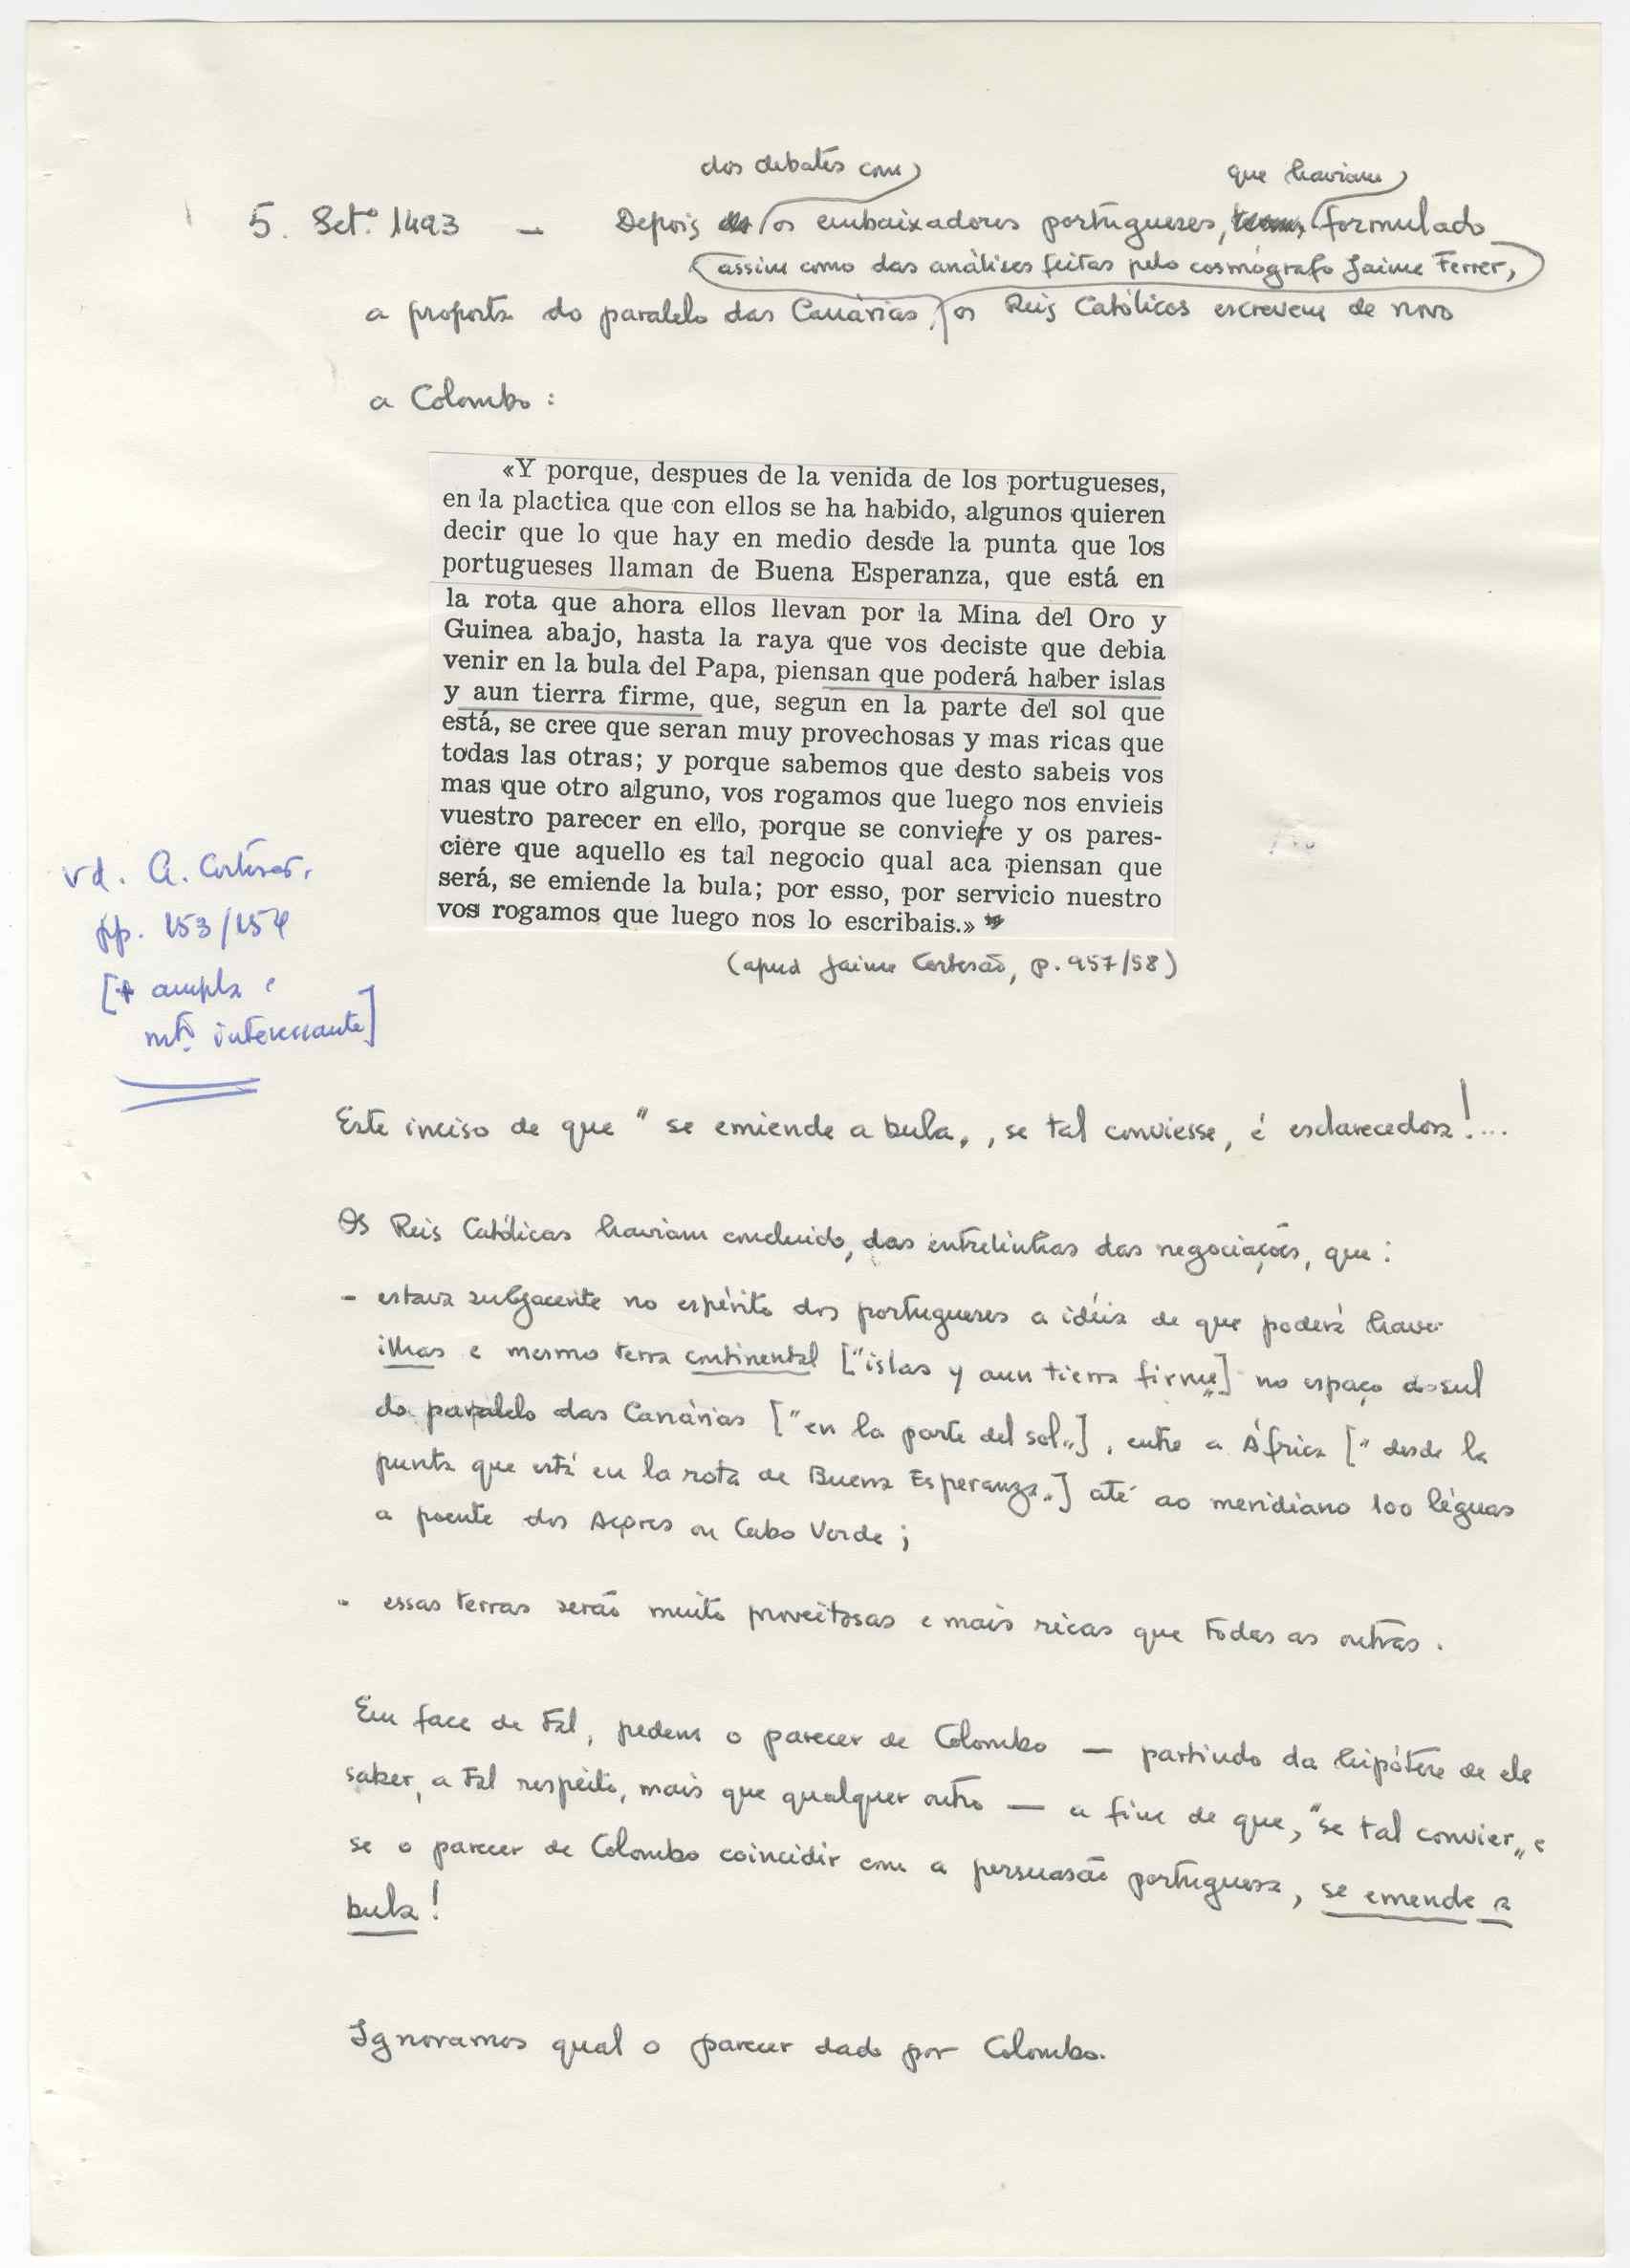 dos debates com que haviam
5. Set.º 1493 — Depois os embaixadores portugueses, formulado
assim como das análises feitas pelo cosmógrafo Jaime Ferrer,
a proposta do paralelo das Canárias, os Reis Católicos escrevem de novo
a Colombo :
«Y porque, despues de la venida de los portugueses,
en la plactica que con ellos se ha habido, algunos quieren
decir que lo que hay en medio desde la punta que los
portugueses llaman de Buena Esperanza, que está en
la rota que ahora ellos llevan por la Mina del Oro y
Guinea abajo, hasta la raya que vos deciste que debia
venir en la bula del Papa, piensan que poderá haber islas
y aun tierra firme, que, segun en la parte del sol que
está, se cree que seran muy provechosas y mas ricas que
todas las otras; y porque sabemos que desto sabeis vos
mas que otro alguno, vos rogamos que luego nos envieis
vuestro parecer en ello, porque se conviere y os pares-
ciere que aquello es tal negocio qual aca piensan que
será, se emiende la bula; por esso, por servicio nuestro
vos rogamos que luego nos lo escribais.»
(apud Jaime Cortesão, p. 957/58)
vd. A. Cortesão,
pp. 153/154
[+ ampla e
mtº interessante]
Este inciso de que " se emiende a bula,, , se tal conviesse, é esclarecedora!...
Os Reis Católicos haviam concluido, das entrelinhas das negociações, que :
- estava subjacente no espírito dos portugueses a idéia de que poderá haver
ilhas e mesmo terra continental ["islas y aun tierra firme,,] no espaço do sul
do paralelo das Canárias ["en la parte del sol,,], entre a África [" desde la
punta que está en la rota de Buena Esperanza,,] até ao meridiano 100 léguas
a poente dos Açores ou Cabo Verde ;
- essas terras serão muito proveitosas e mais ricas que todas as outras .
Em face de tal, pedem o parecer de Colombo — partindo da hipótese de ele
saber, a tal respeito, mais que qualquer outro — a fim de que, "se tal convier,, e
se o parecer de Colombo coincidir com a persuasão portuguesa, se emende a
bula !
Ignoramos qual o parecer dado por Colombo.